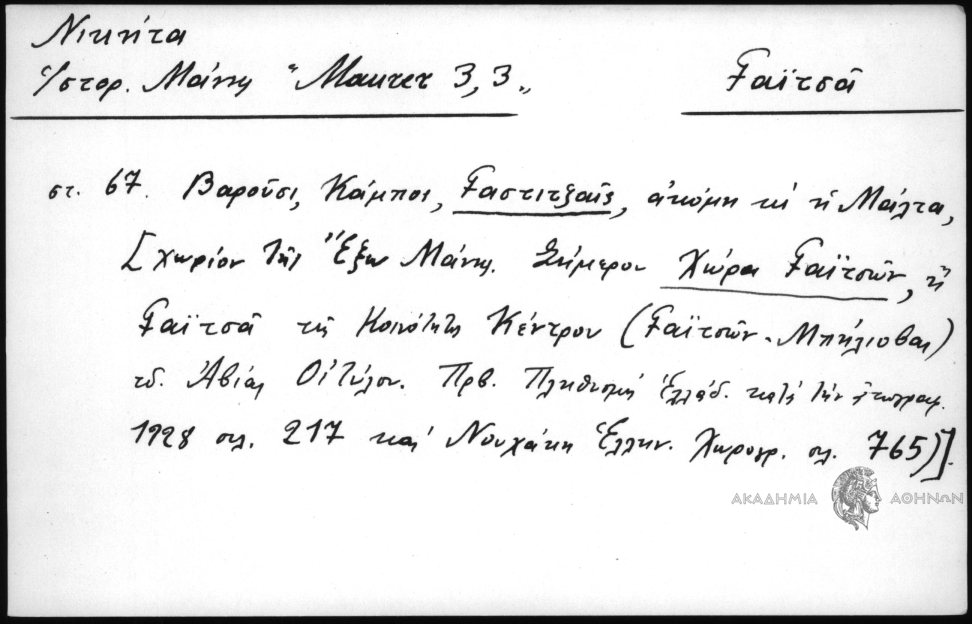 Νικήτα
Ἱστορ. Μάνης "Μαυτετ 3, 3„
Γαϊτσᾶ
στ. 67. Βαροῦσι, Κάμποι, Γαστιτζαῖς, ἀκόμη κι ἡ Μάλτα,
[χωρίον τῆς Ἔξω Μάνης. Σήμερον Χώρα Γαϊτσῶν, ἢ
Γαϊτσᾶ τῆς Κοινότητος Κέντρου (Γαϊτσῶν - Μπήλιοβας)
τδ. Ἀβίας Οἰτύλου. Πρβ. Πληθυσμὸς Ἑλλάδ. κατὰ τὴν ἀπογραφ.
1928 σελ. 217 καὶ Νουχάκη Ἑλλην. Χωρογρ. σελ. 765)].
ΑΚΑΔΗΜΙΑ ΑΘΗΝΩΝ